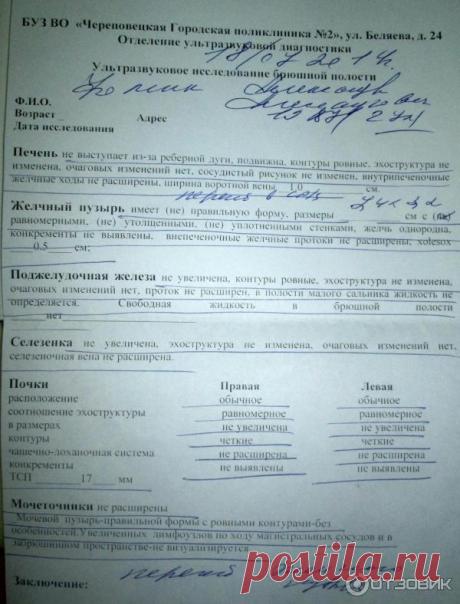 БУЗ ВО «Череповецкая Городская поликлиника №2», ул. Беляева, д. 24
Отделение ультразвуковой диагностики
Ультразвуковое исследование брюшной полости
Ф.И.О.
Возраст Адрес
Дата исследования
Печень не выступает из-за реберной дуги, подвижна, контуры ровные, эхоструктура не
изменена, очаговых изменений нет, сосудистый рисунок не изменен, внутрипеченочные
желчные ходы не расширены, ширина воротной вены 1,0 см.
перегиб в
Желчный пузырь имеет (не) правильную форму, размеры см с
равномерными, (не) утолщенными, (не) уплотненными стенками, желчь однородна,
конкременты не выявлены, внепеченочные желчные протоки не расширены, xolesox
0.5 см;
Поджелудочная железа не увеличена, контуры ровные, эхоструктура не изменена,
очаговых изменений нет, проток не расширен, в полости малого сальника жидкость не
определяется. Свободная жидкость в брюшной полости
нет
Селезенка не увеличена, эхоструктура не изменена, очаговых изменений нет,
селезеночная вена не расширена.
Почки Правая Левая
расположение обычное обычное
соотношение эхоструктуры равномерное равномерное
в размерах не увеличена не увеличена
контуры четкие четкие
чашечно-лоханочная система не расширена не расширена
конкременты не выявлены не выявлены
ТСП 17 мм
Мочеточники не расширены
Мочевой пузырь-правильной формы с ровными контурами-без
особенностей.Увеличенных лимфоузлов по ходу магистральных сосудов и в
забрюшинном пространстве-не визуализируется
Заключение: перегиб
postila.ru
ОТЗОВИК